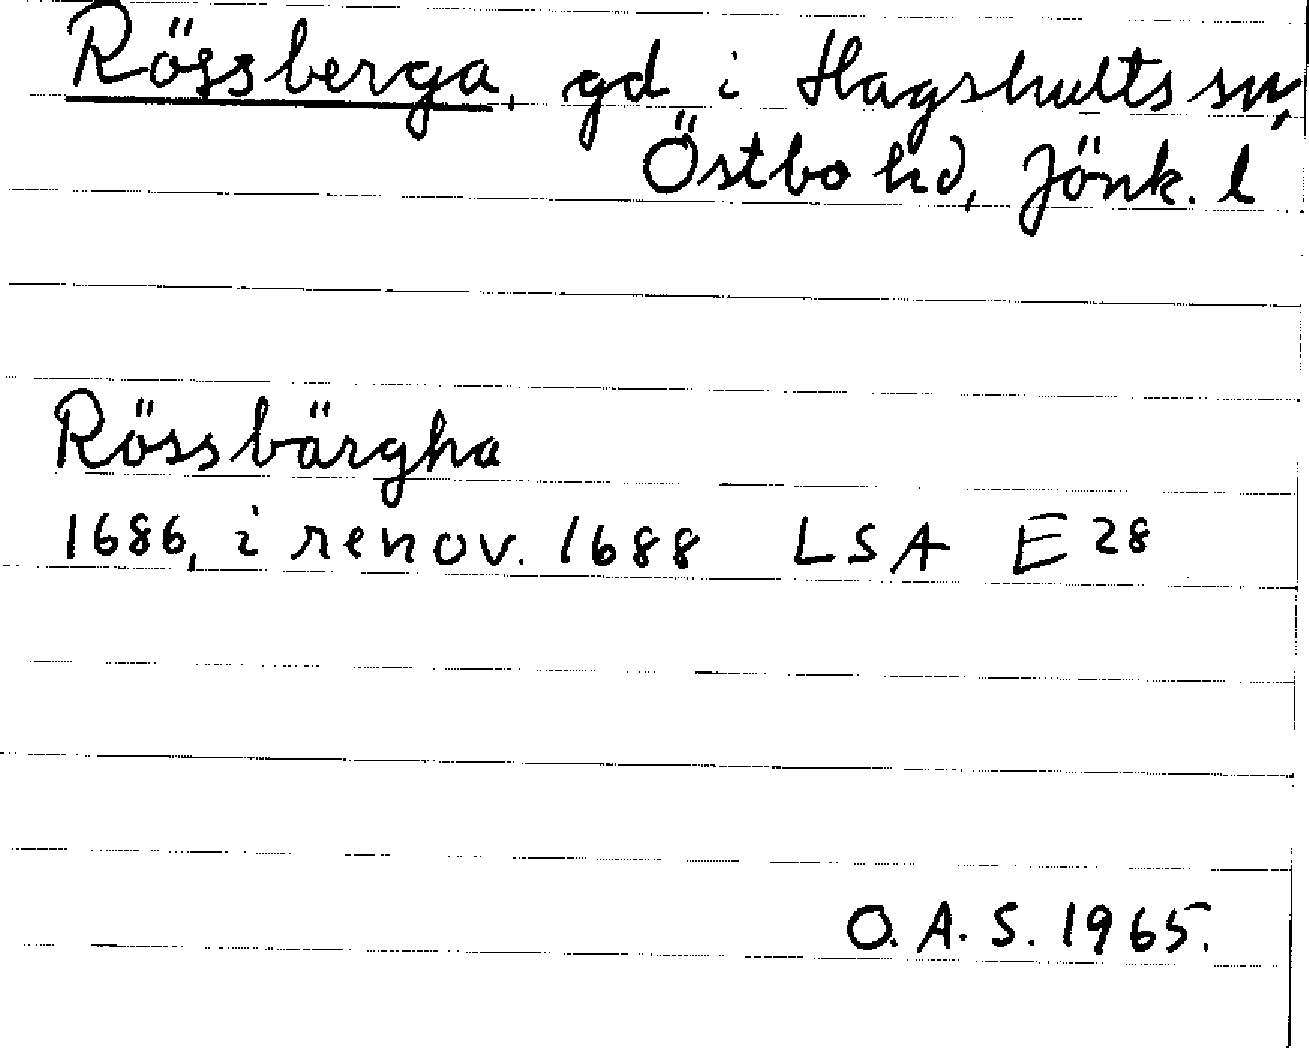 Rössberga, gd i Hagshults sn,
Östbo hd, Jönk. l
Rössbärgha
1686, i renov. 1688 LSA E 28
O. A. S. 1965.